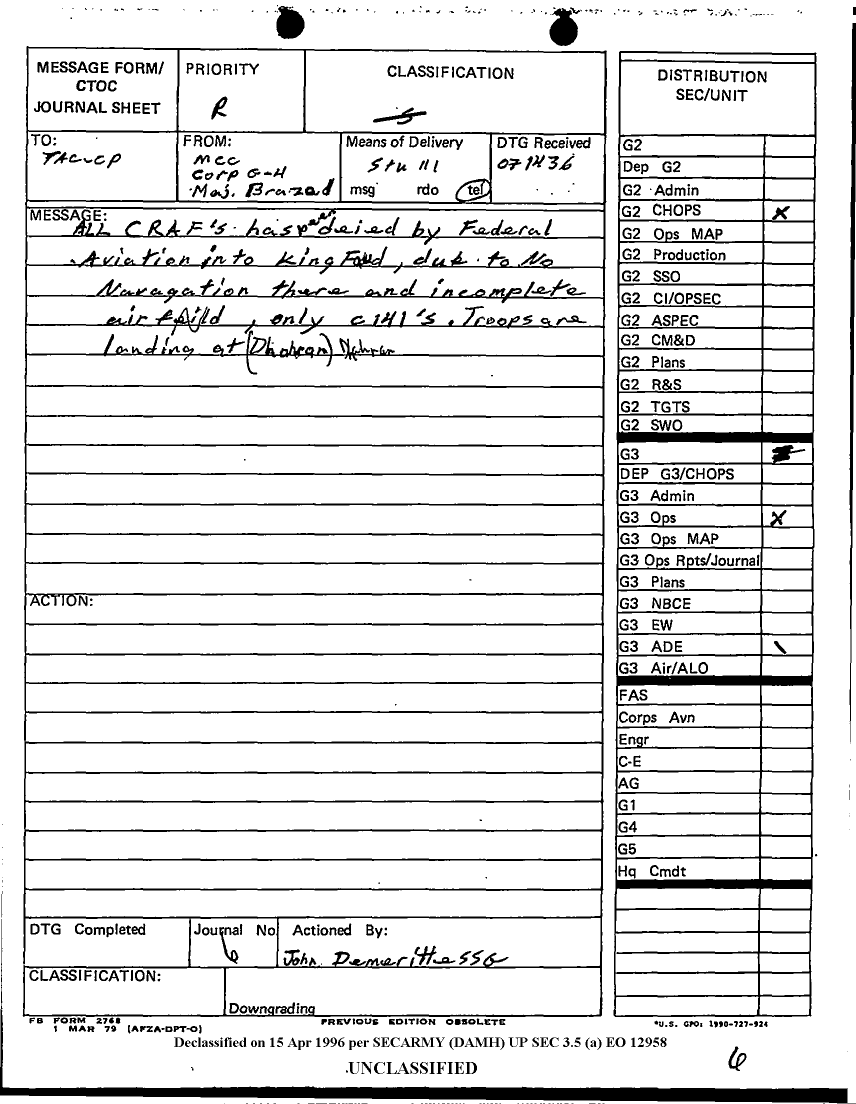 MESSAGE FORM/
CTOC
JOURNAL SHEET
PRIORITY
R
CLASSIFICATION
S
TO:
TAC-CP
FROM:
MCC
Corp G-4
Maj. Brazad
Means of Delivery
Stu III
msg rdo tel
DTG Received
071436
MESSAGE:
ALL CRAF's has been deied by Federal
Aviation into King Faud, due to No
Navagation there and incomplete
air feild, only c141's. Troops are
landing at (Dhahran)
ACTION:
DTG Completed
Journal No
6
Actioned By:
John Demeritte SSG
CLASSIFICATION:
Downgrading
FB FORM 2768
1 MAR 79 (AFZA-DPT-O)
PREVIOUS EDITION OBSOLETE
DISTRIBUTION
SEC/UNIT
G2
Dep G2
G2 Admin
G2 CHOPS X
G2 Ops MAP
G2 Production
G2 SSO
G2 CI/OPSEC
G2 ASPEC
G2 CM&D
G2 Plans
G2 R&S
G2 TGTS
G2 SWO
G3
DEP G3/CHOPS
G3 Admin
G3 Ops X
G3 Ops MAP
G3 Ops Rpts/Journal
G3 Plans
G3 NBCE
G3 EW
G3 ADE \
G3 Air/ALO
FAS
Corps Avn
Engr
C-E
AG
G1
G4
G5
Hq Cmdt
*U.S. GPO: 1990-727-924
Declassified on 15 Apr 1996 per SECARMY (DAMH) UP SEC 3.5 (a) EO 12958
UNCLASSIFIED
6